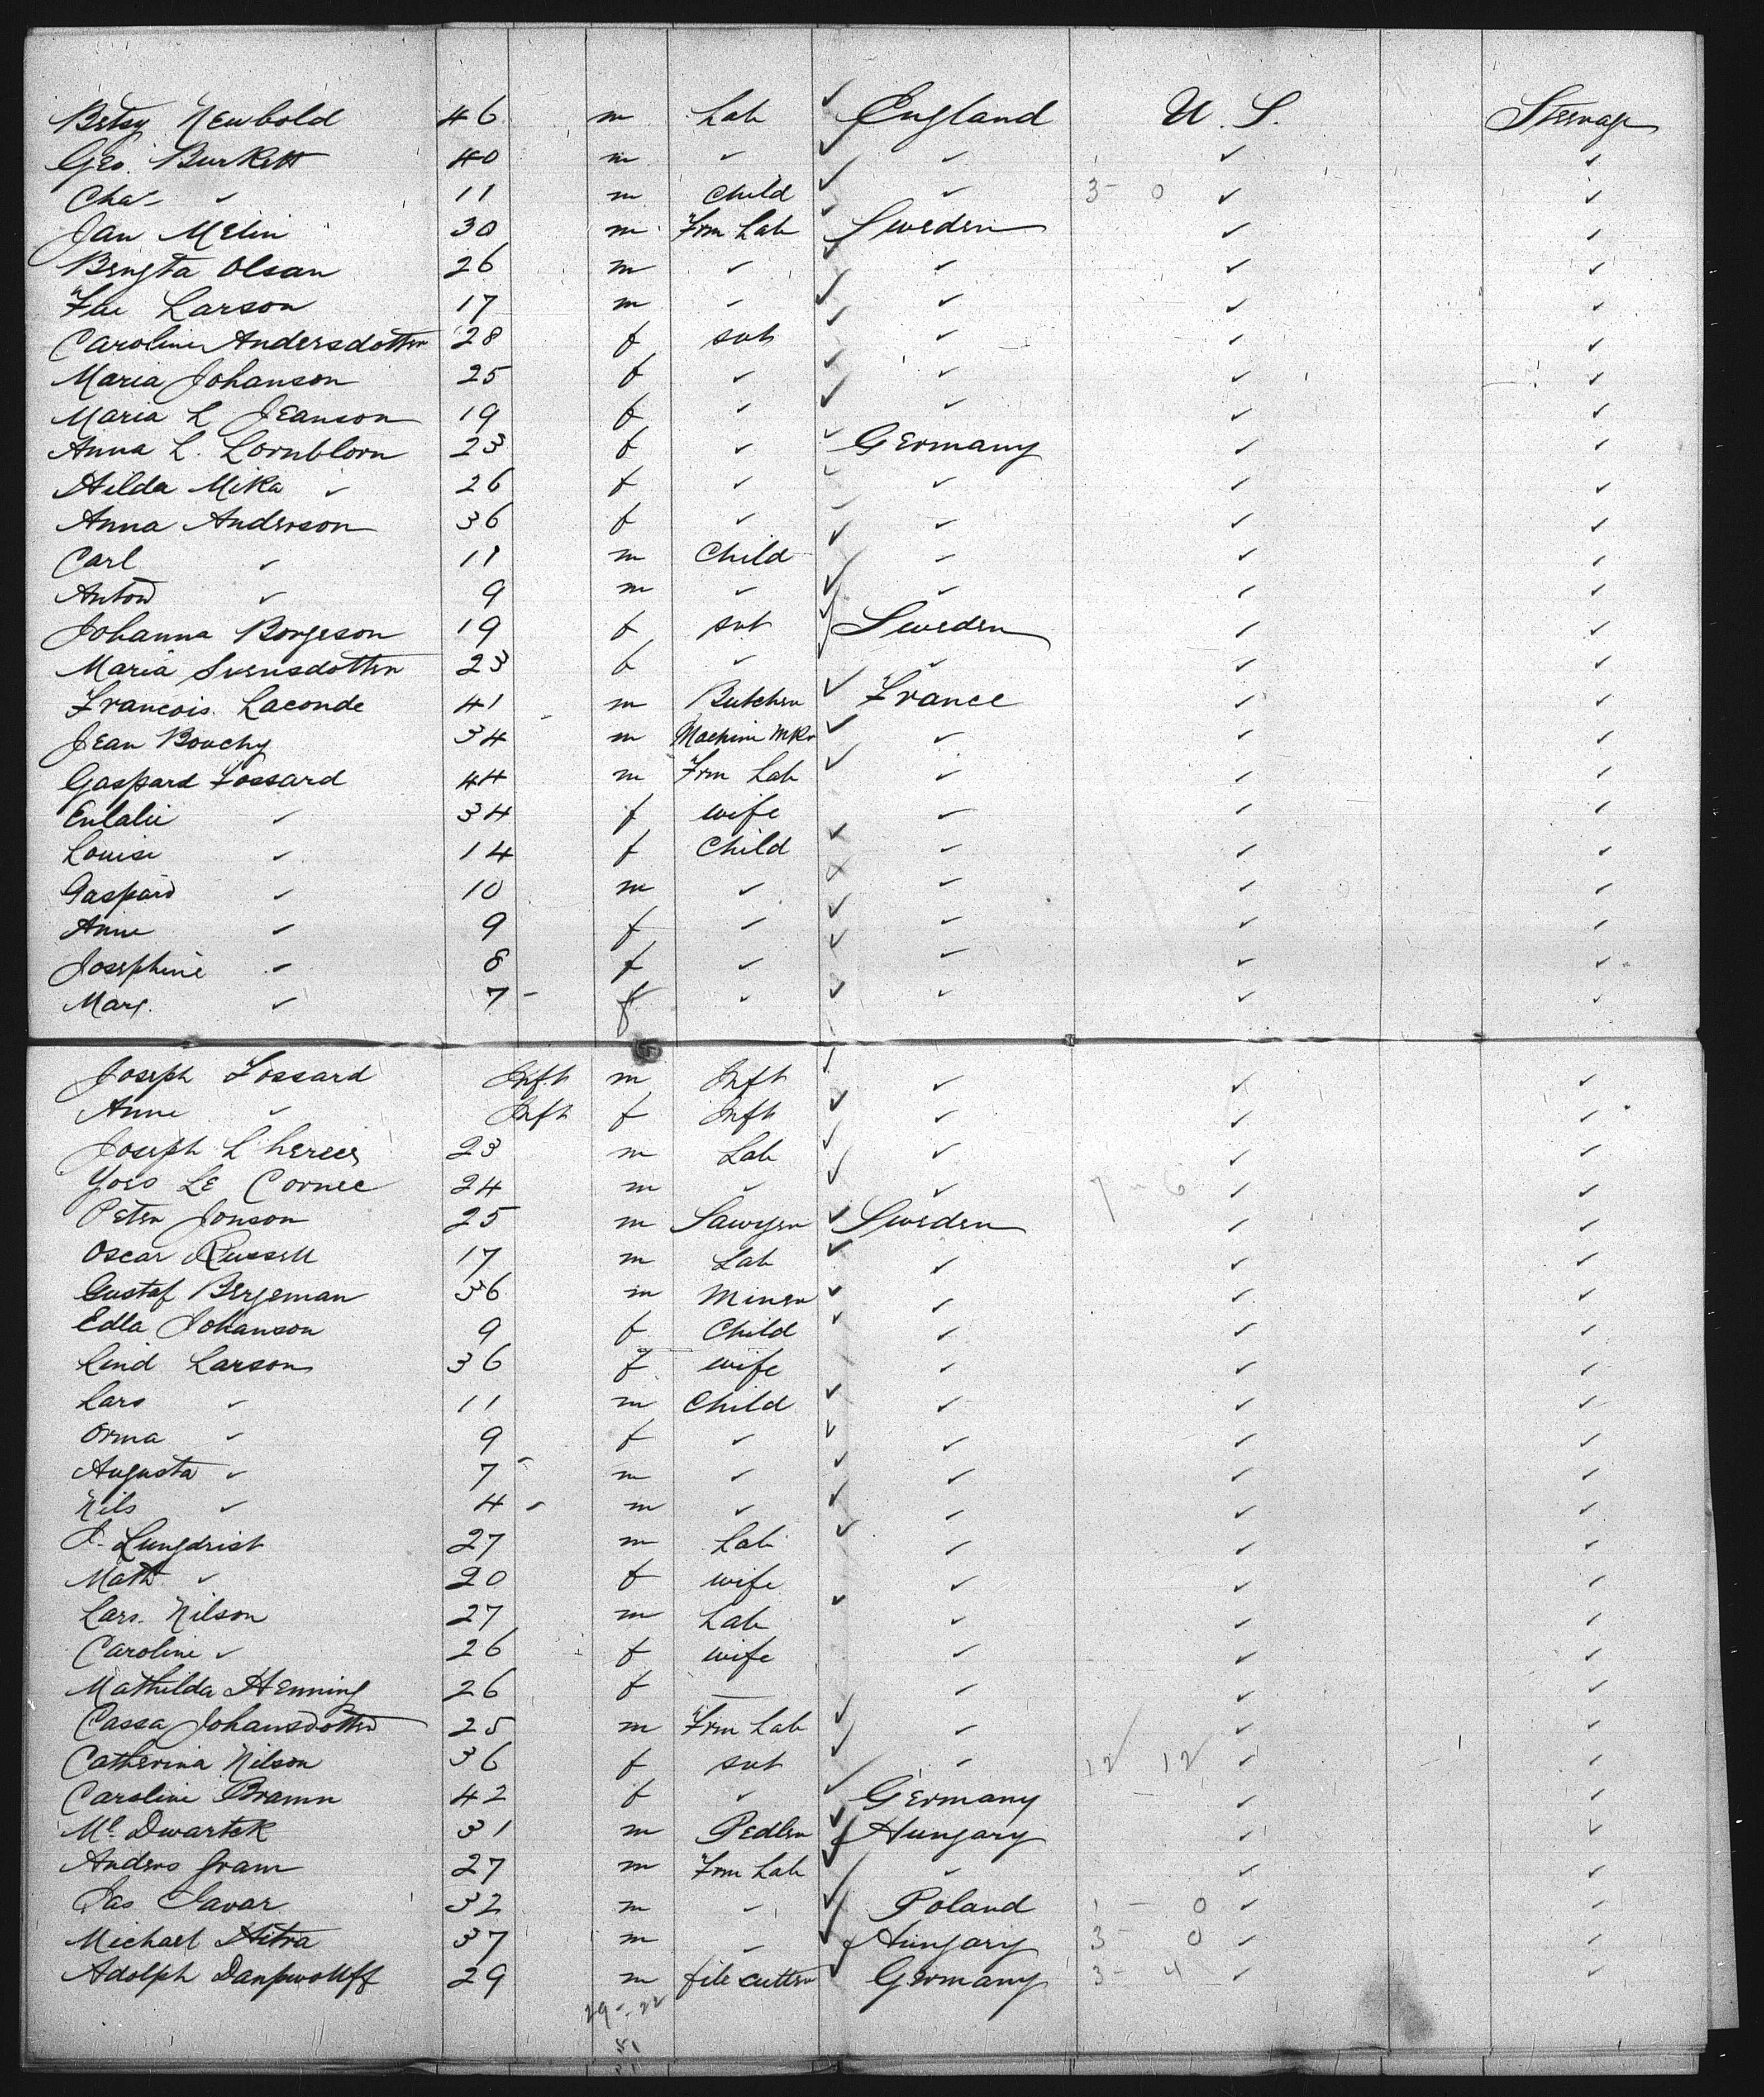 Betsy Newbold 46 m Lab ✓ England U. S. Steerage
Geo. Burkett 40 m ✓ ✓ ✓ ✓ ✓
Chas ✓ 11 m Child ✓ ✓ 3 - 0 ✓ ✓
Jan Melin 30 m Frm Lab ✓ Sweden ✓ ✓
Bengta Olsan 26 m ✓ ✓ ✓ ✓ ✓
Larson 17 m ✓ ✓ ✓ ✓ ✓
Caroline Andersdotter 28 f svt ✓ ✓ ✓ ✓
Maria Johanson 25 f ✓ ✓ ✓ ✓ ✓
Maria L Jeanson 19 f ✓ ✓ ✓ ✓ ✓
Anna L. Lornblorn 23 f ✓ ✓ Germany ✓ ✓
Hilda Mika ✓ 26 f ✓ ✓ ✓ ✓ ✓
Anna Anderson 36 f ✓ ✓ ✓ ✓ ✓
Carl ✓ 11 m Child ✓ ✓ ✓ ✓
Anton ✓ 9 m ✓ ✓ ✓ ✓ ✓
Johanna Borgeson 19 f svt ✓ Sweden ✓ ✓
Maria Svensdotter 23 f ✓ ✓ ✓ ✓
Francois. Laconde 41 - m Butcher ✓ France ✓ ✓
Jean Bouchy 34 m Machine Mkr ✓ ✓ ✓ ✓
Gaspard Fossard 44 m Frm Lab ✓ ✓ ✓ ✓
Eulalie ✓ 34 f wife ✓ ✓ ✓
Louise ✓ 14 f Child ✓ ✓ ✓ ✓
Gaspard ✓ 10 m ✓ ✓ ✓ ✓
Anne ✓ 9 f ✓ ✓ ✓ ✓ ✓
Josephine ✓ 8 f ✓ ✓ ✓ ✓ ✓
Mary. ✓ 7 - f ✓ ✓ ✓ ✓ ✓
Joseph Fossard Inft m Inft ✓ ✓ ✓ ✓
Anne ✓ Inft f Inft ✓ ✓ ✓ ✓
Joseph 23 m Lab ✓ ✓ ✓ ✓
Le Cornec 24 m ✓ ✓ ✓ 7 - 6 ✓ ✓
Peter Jonson 25 m Sawyer ✓ Sweden ✓ ✓
Oscar Russell 17 m Lab ✓ ✓ ✓ ✓
Gustaf Bergeman 36 m Miner ✓ ✓ ✓ ✓
Edla Johanson 9 f Child ✓ ✓ ✓ ✓
Lind Larson 36 f wife ✓ ✓ ✓
Lars ✓ 11 m Child ✓ ✓ ✓ ✓
Orma ✓ 9 f ✓ ✓ ✓ ✓ ✓
Augusta ✓ 7 - m ✓ ✓ ✓ ✓ ✓
Nils ✓ 4 - m ✓ ✓ ✓ ✓ ✓
J. Lungdrist 27 m Lab ✓ ✓ ✓ ✓
Math ✓ 20 f wife ✓ ✓ ✓
Lars. Nilson 27 m Lab ✓ ✓ ✓ ✓
Caroline ✓ 26 f wife ✓ ✓ ✓
Mathilda Henning 26 f — ✓ ✓ ✓
Cassa Johansdotter 25 m Frm Lab ✓ ✓ ✓ ✓
Catherina Nilson 36 f svt ✓ ✓ 12 12 ✓ ✓
Caroline Bramn 42 f ✓ ✓ Germany ✓ ✓
Ml. Dwartek 31 m Pedler ✓ Hungary ✓ ✓
Anders Gram 27 m Frm Lab ✓ ✓ ✓ ✓
Jas Savar 32 m ✓ ✓ Poland 1 - 0 ✓ ✓
Michael Hitra 37 m ✓ ✓ Hungary 3 - 0 ✓ ✓
Adolph 29 m file cutter ✓ Germany 3 - 4 ✓ ✓
29 - 22
51